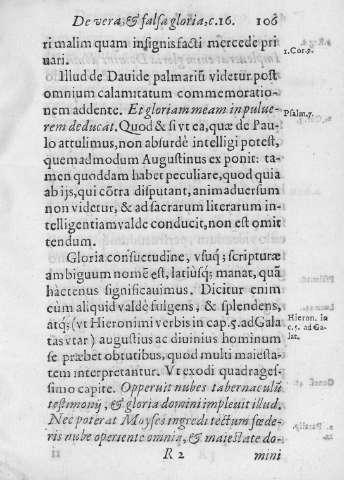 De vera, & falsa gloria, c. 16. 106
ri malim quam insignis facti mercede pri
uari.
1. Cor. 9.
Illud de Dauide palmariũ videtur post
omnium calamitatum commemoratio-
nem addente. Et gloriam meam in pulue-
rem deducat. Quod & si vt ea, quæ de Pau-
Psalm. 7.
lo attulimus, non absurdè intelligi potest,
quemadmodum Augustinus exponit: ta-
men quoddam habet peculiare, quod quia
ab ijs, qui cõtra disputant, animaduersum
non videtur, & ad sacrarum literarum in-
telligentiam valde conducit, non est omit
tendum.
Gloria consuetudine, vsuq; scripturæ
ambiguum nomẽ est, latiùsq; manat, quã
hactenus significauimus. Dicitur enim
cùm aliquid valdè fulgens, & splendens,
atq; (vt Hieronimi verbis in cap. 5. ad Gala
tas vtar) augustius ac diuinius hominum
Hieron. in
c. 5. ad Ga-
lat.
se præbet obtutibus, quod multi maiesta-
tem interpretantur. Vt exodi quadrages-
simo capite. Opperuit nubes tabernaculũ
testimonij, & gloria domini impleuit illud.
Nec poterat Moyses ingredi tectum fœde-
ris nube operiente omnia, & maiestate do-
R 2 mini